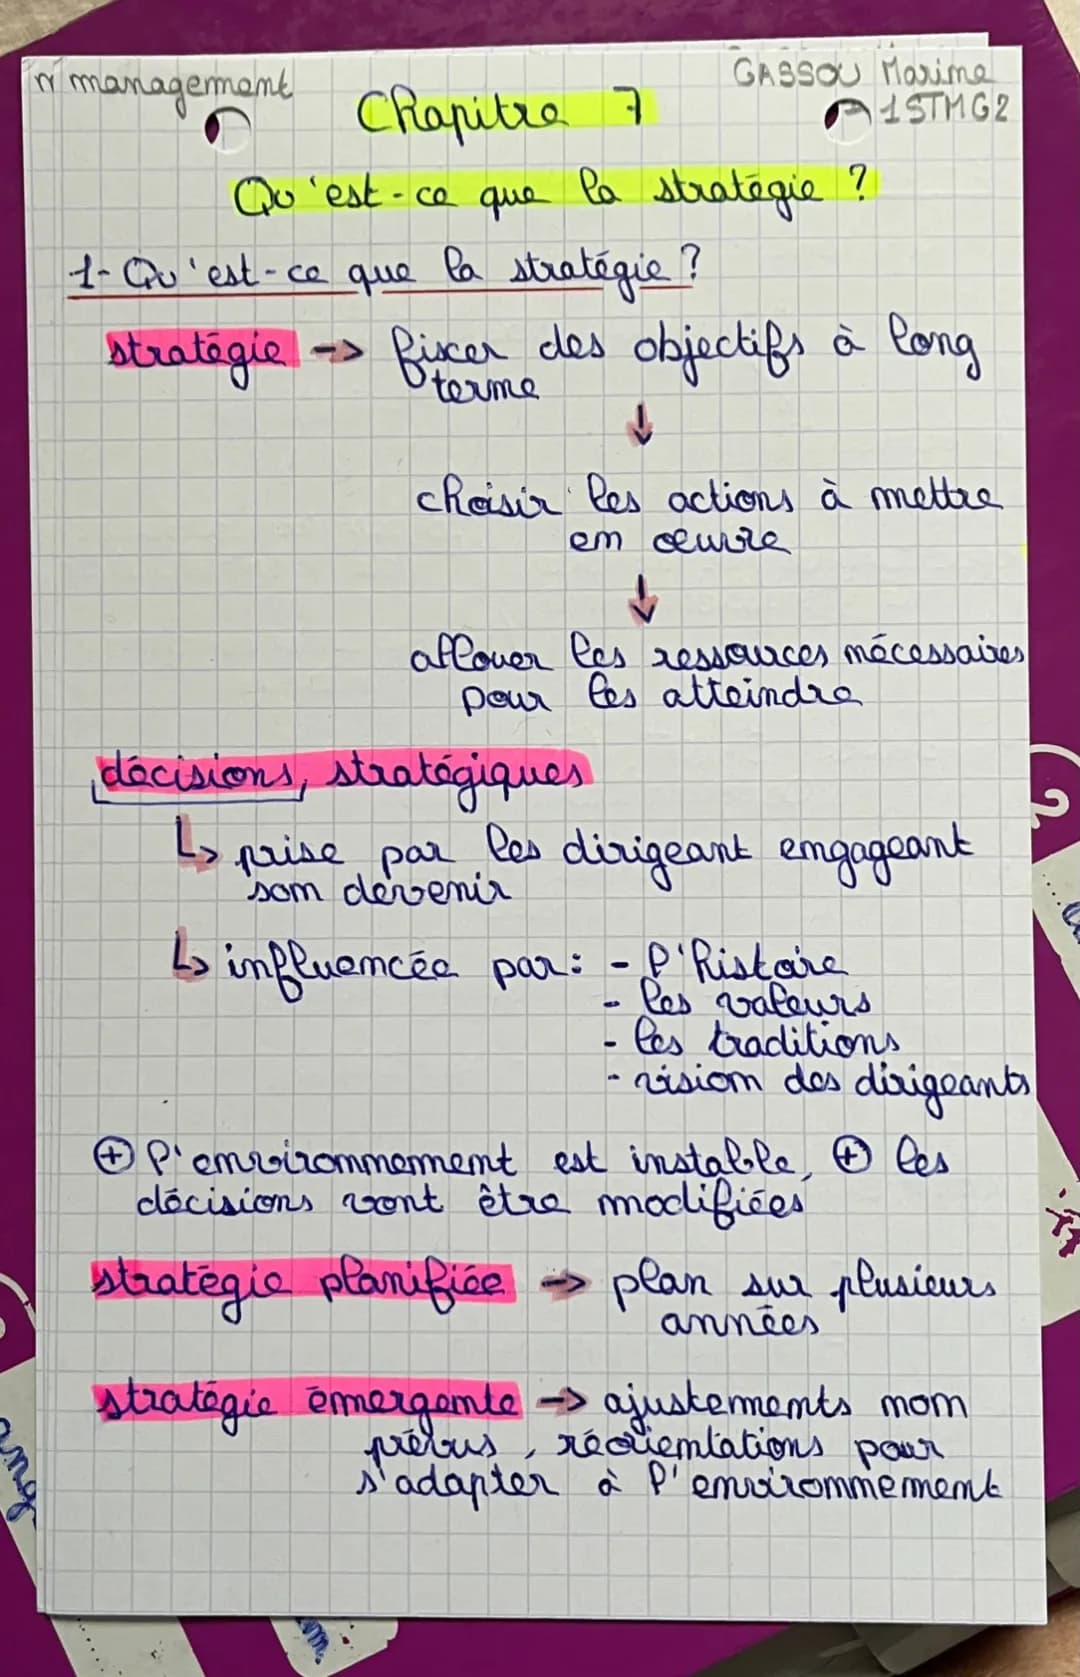 management
GASSOU Marine
1STMG2
Chapitre 7
Qu'est-ce que la stratégie ?
1- Qu'est-ce que la stratégie ?
stratégie → fixer des objectifs à long
terme
↓
choisir les actions à mettre
en œuvre
↓
allouer les ressources nécessaires
pour les atteindre
décisions stratégiques
↳ prise par les dirigeant engageant
son devenir
↳ influencée par : - l'histoire
- les valeurs
- les traditions
- vision des dirigeants
⊕ l'environnement est instable, ⊕ les
décisions vont être modifiées
stratégie planifiée → plan sur plusieurs
années
stratégie émergente → ajustements non
prévus, réorientations pour
s'adapter à l'environnement